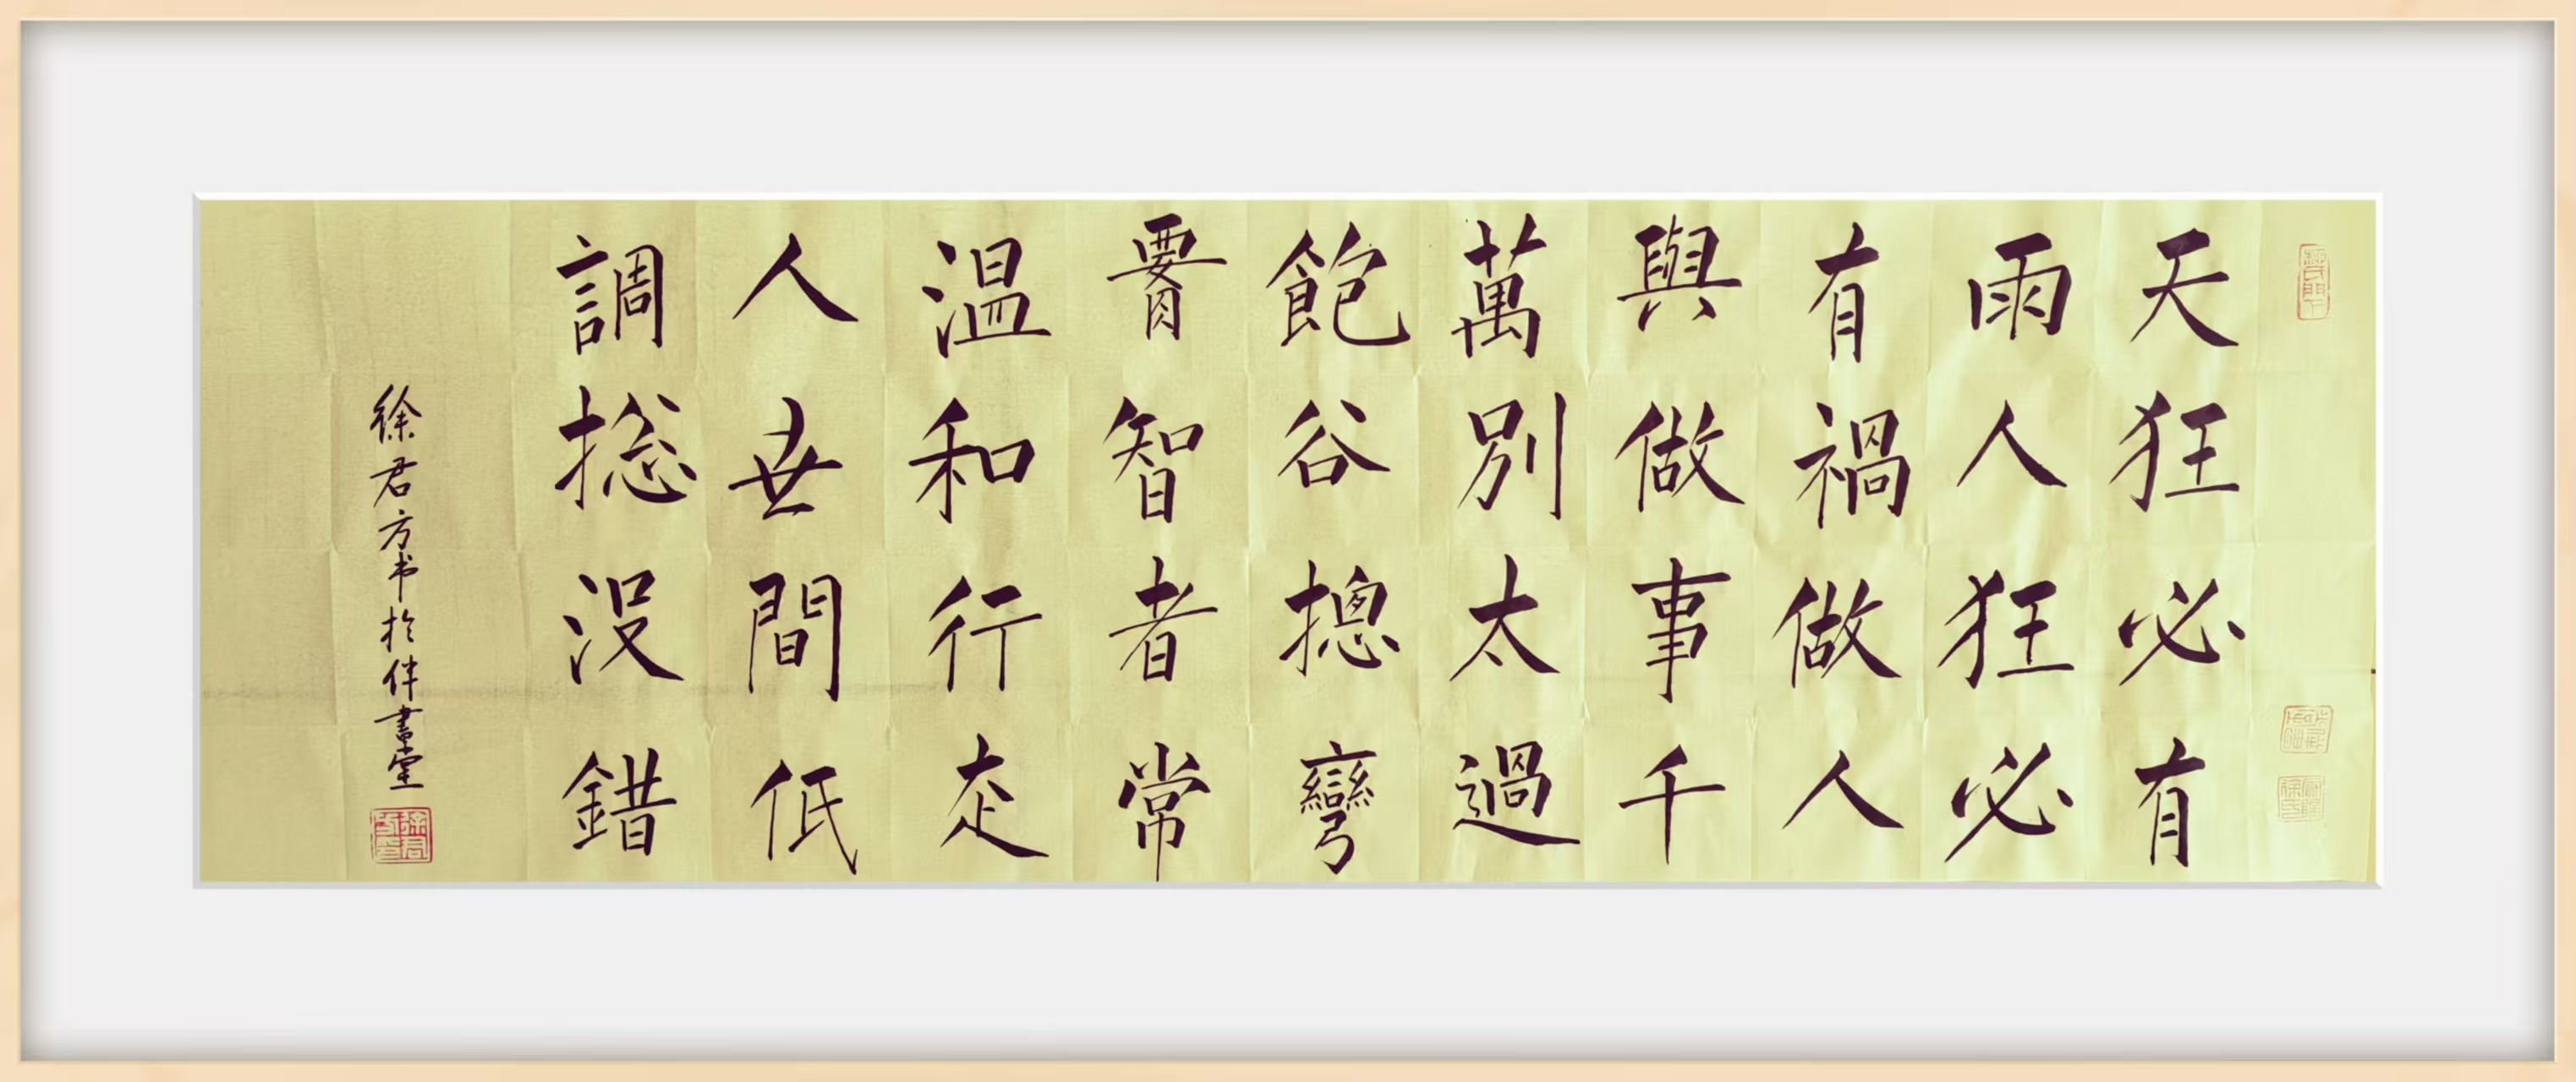 天狂必有
雨人狂必
有禍做人
與做事千
萬別太過
飽谷摠彎
腰智者常
溫和行走
人世間低
調捴没錯
徐君方书於伴書堂